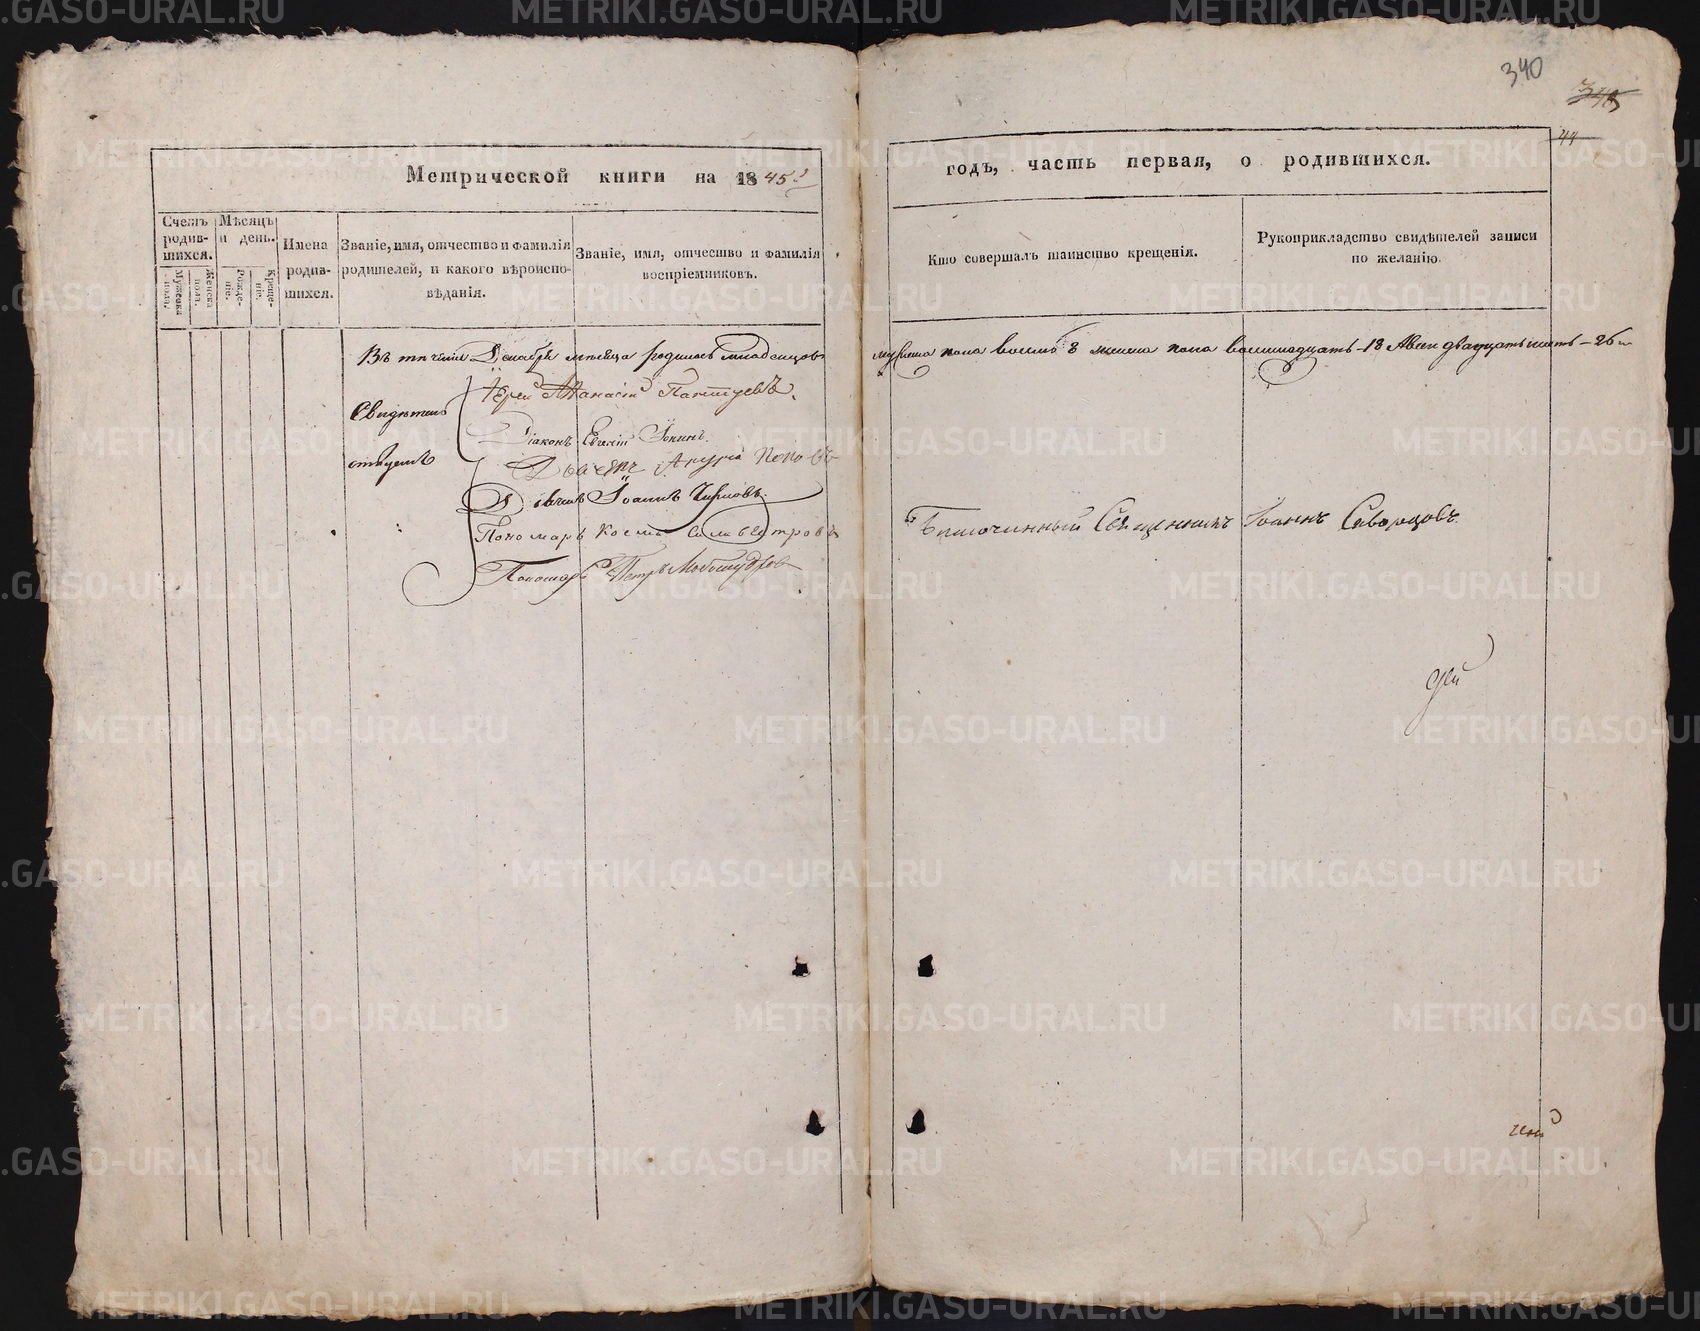 340
345
44
Метрической книги на 1845
годъ, часть первая, о родившихся.
Счетъ родившихся.
Мужеска пола.
Женска пола.
Мѣсяцъ и день.
Рожденіе.
Крещеніе.
Имена родившихся.
Званіе, имя, отчество и фамилія родителей, и какого вѣроисповѣданія.
Званіе, имя, отчество и фамилія воспріемниковъ.
Кто совершалъ таинство крещенія.
Рукоприкладство свидѣтелей записи по желанію.
Въ теченіи Декабря мѣсяца родилось младенцовъ мужеска пола восемь 8 женска пола восемнадцать - 18 Всеи двадцать шесть - 26
Свидѣтели
Іерей Аѳанасій
Діаконъ Евгеній
Дьячекъ
Дьячекъ Іоаннъ
Пономарь Косма Сильвестровъ
Пономарь Петръ
Благочинный Священникъ Іоаннъ Скворцовъ.
METRIKI.GASO-URAL.RU